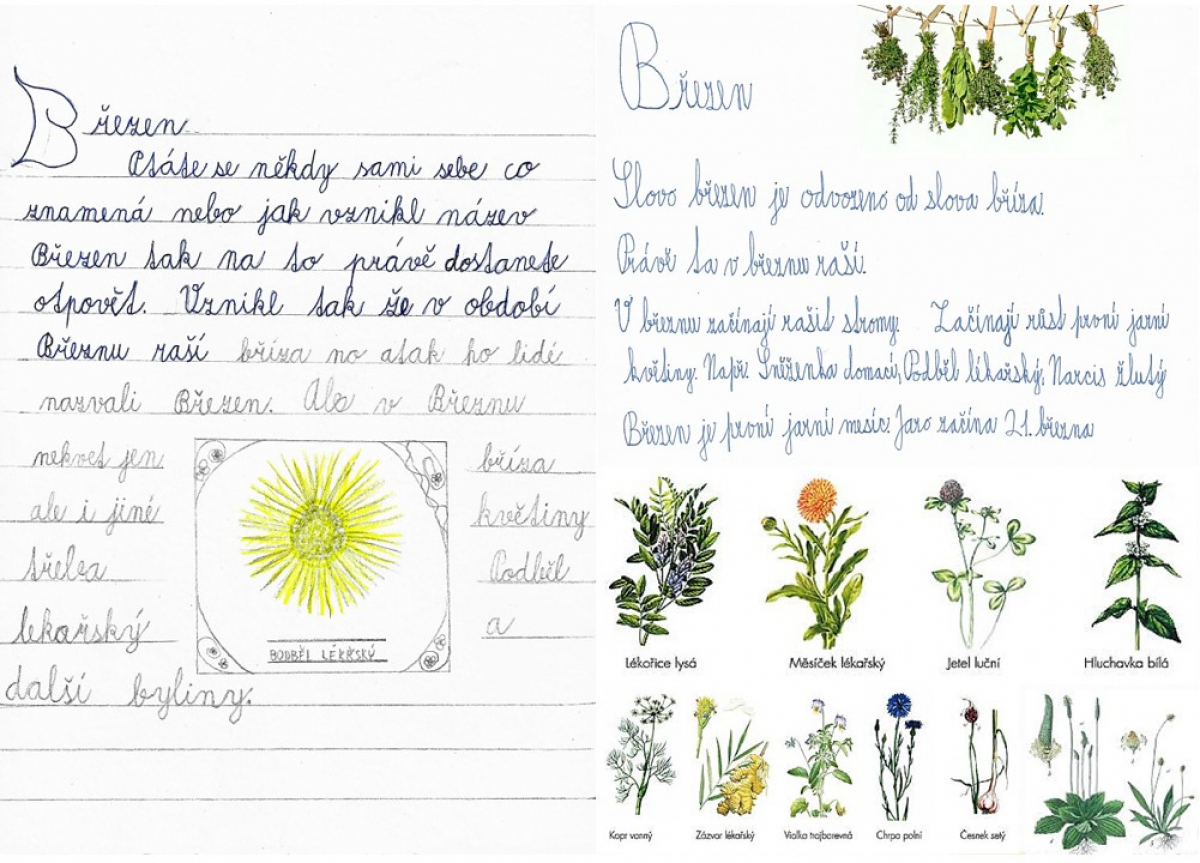 Březen
Ptáte se někdy sami sebe co
znamená nebo jak vznikl název
Březen tak na to právě dostanete
otpovět. Vznikl tak že v období
Březnu raší bříza no atak ho lidé
nazvali Březen. Ale v Březnu
nekvet jen bříza
ale i jiné květiny
třeba Podběl
lekařský a
PODBĚL LÉKŘSKÝ
další byliny.
Březen
Slovo březen je odvozeno od slova bříza.
Právě ta v březnu raší.
V březnu začínají rašit stromy. Začínají růst první jarní
květiny. Např. Sněženka domací, Podběl lékařský, Narcis žlutý
Březen je první jarní mesíc. Jaro začína 21. března
Lékořice lysá Měsíček lékařský Jetel luční Hluchavka bílá
Kopr vonný Zázvor lékařský Violka trojbarevná Chrpa polní Česnek setý